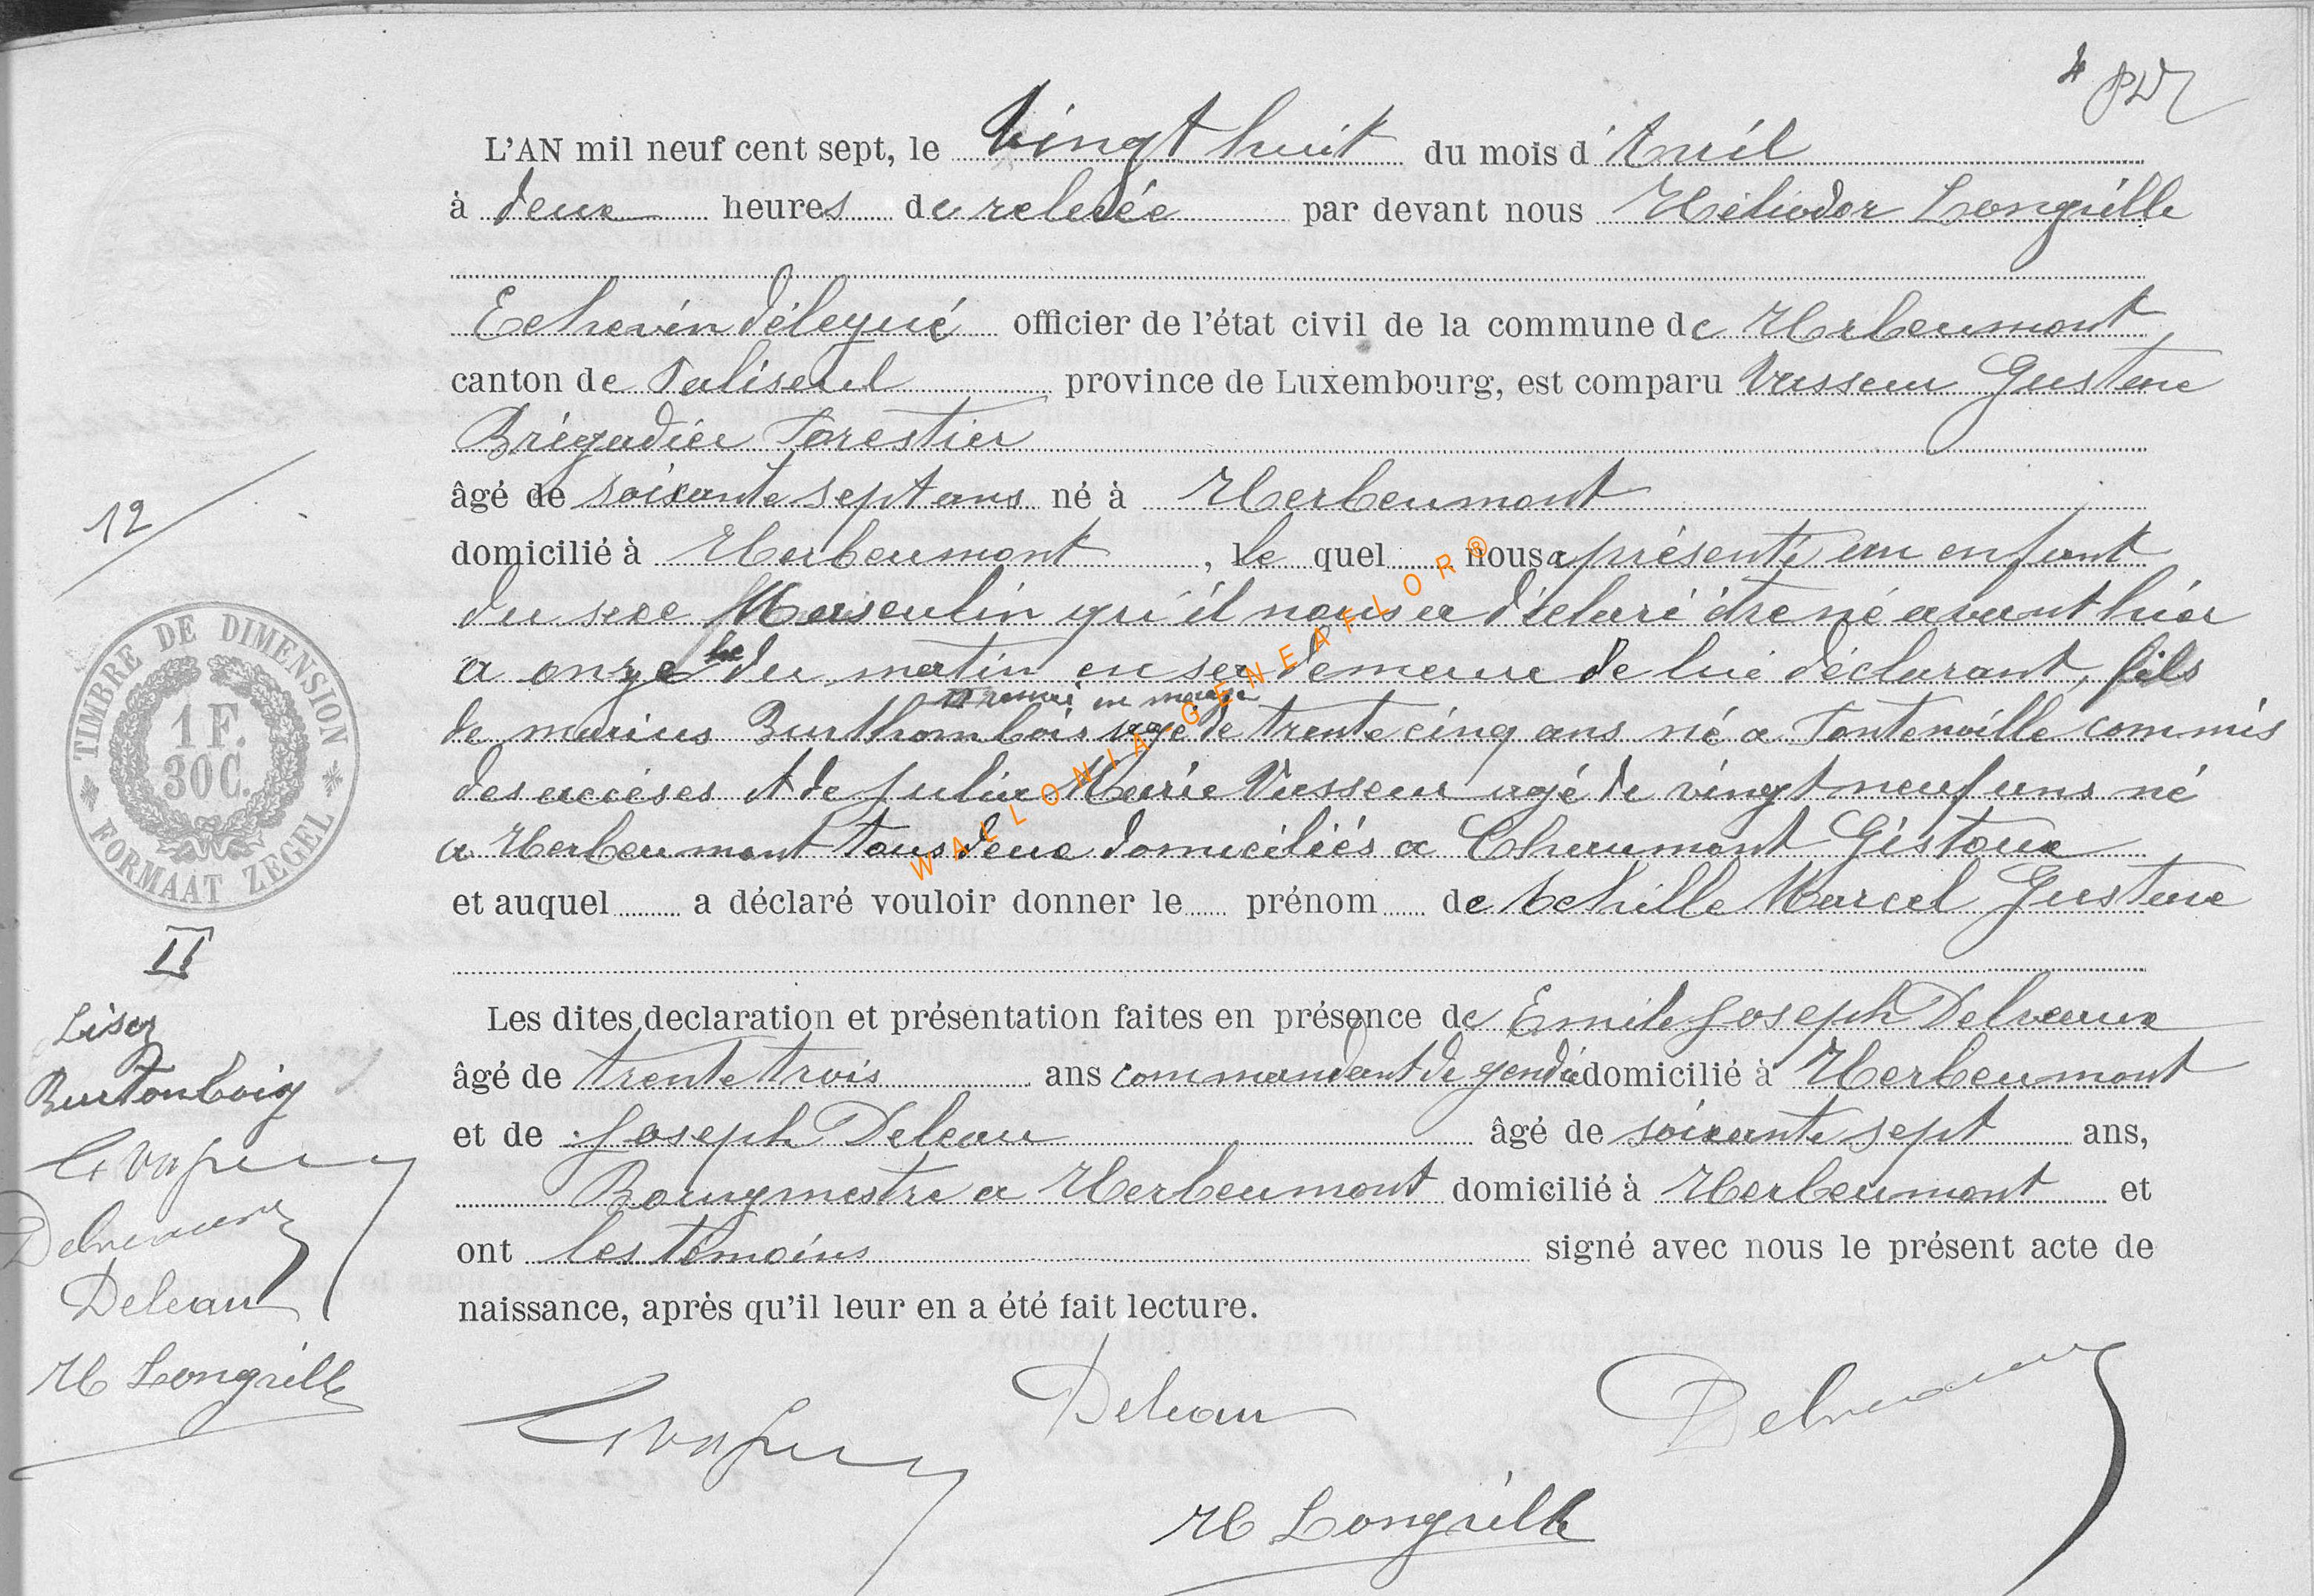 4
L'AN mil neuf cent sept, le vingt huit du mois d'Avril
à deux heures de relevée par devant nous Héliodor Longrille
Echevin délegué officier de l'état civil de la commune de Herbeumont
canton de Paliseul province de Luxembourg, est comparu Vasseur Gustave
Brigadier Forestier
12
âgé de soixante sept ans né à Herbeumont
domicilié à Herbeumont, le quel nous a présenté un enfant
du sexe Masculin qu'il nous a déclaré être né avant hier
a onze he du matin en sa demeure de lui déclarant, fils
en mariage
de marius Burthombois agé de trente cinq ans né a Fontenoille commis
des accises et de Julia Marie Vasseur agé de vingt neuf ans né
a Herbeumont tous deux domiciliés a Chaumont Gistoux
et auquel a déclaré vouloir donner le prénom de Achille Marcel Gustave
TIMBRE DE DIMENSION
1 F.
30 C.
FORMAAT ZEGEL
II
Les dites declaration et présentation faites en présence de Emile Joseph Delvaux
âgé de trente trois ans commandant de gendie domicilié à Herbeumont
et de Joseph Deleau âgé de soixante sept ans,
Bourgmestre a Herbeumont domicilié à Herbeumont et
ont les témoins signé avec nous le présent acte de
naissance, après qu'il leur en a été fait lecture.
Lisez
Burtonboig
Delvaux
Deleau
H Longrille
Deleau
Delvaux
H Longrille
WALLONIA-GENEAFLOR®